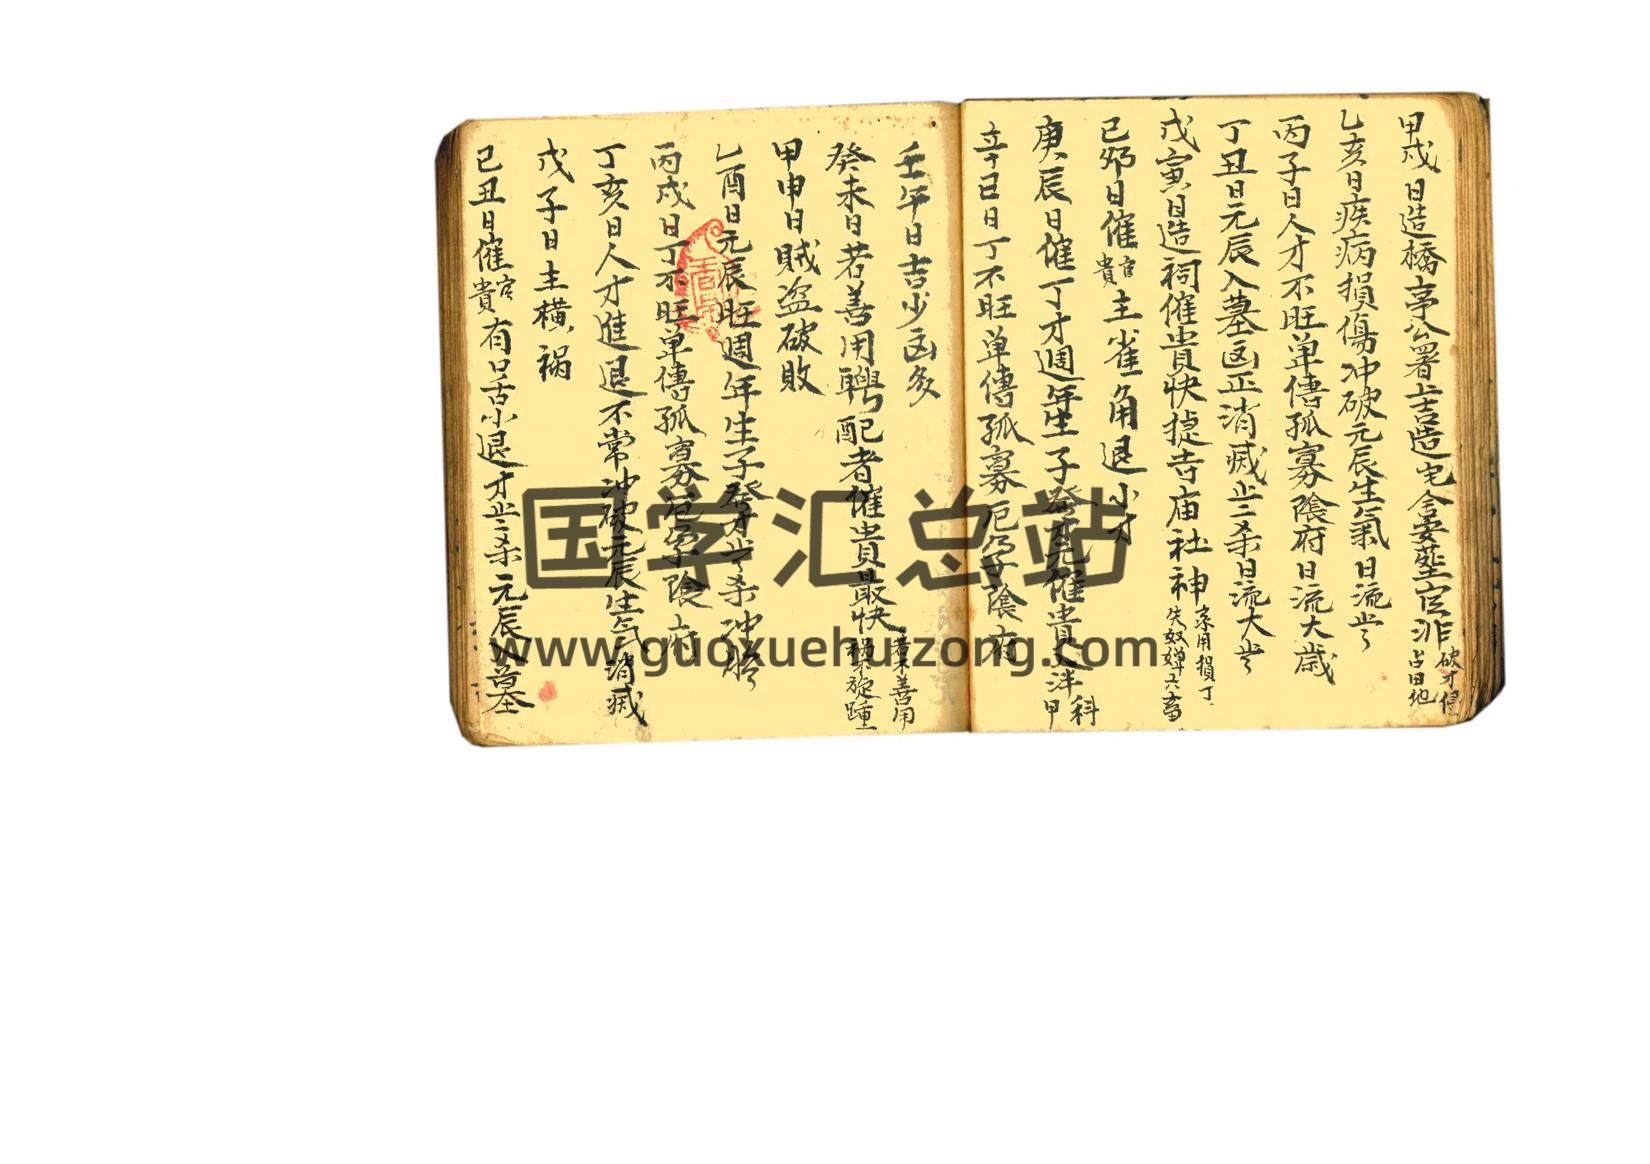 甲戌日造橋亭公署士吉造宅舍安塟官非破才侵占田地
乙亥日疾病損傷冲破元辰生氣日流
丙子日人才不旺单傳孤寡陰府日流大歲
丁丑日元辰入墓凶正消滅 杀日流大
戊寅日造祠催貴快捷寺庙社神 用損丁失奴婢六畜
己卯日催官貴主雀角退小才
庚辰日催丁才週年生子發才元催貴入泮科甲
辛巳日丁不旺单傳孤寡 陰府
壬午日吉少凶多
癸未日若善用聘配者催貴最快若不善用禍不旋踵
甲申日賊盗破敗
乙酉日元辰旺週年生子發才 杀
丙戌日丁不旺单傳孤寡 陰府
丁亥日人才進退不常冲破元辰生气消滅
戊子日主橫禍
己丑日催官貴有口舌小退才 杀元辰入墓
国学汇总站
www.guoxuehuizong.com